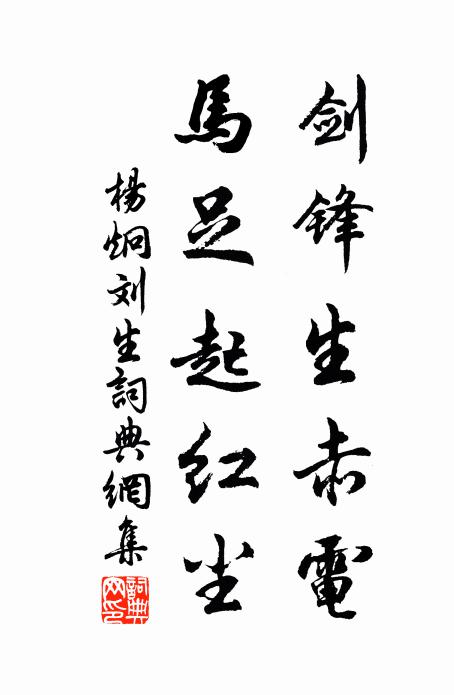 剑锋生赤電
馬足起红尘
楊炯刘生詞典網集
詞典網印